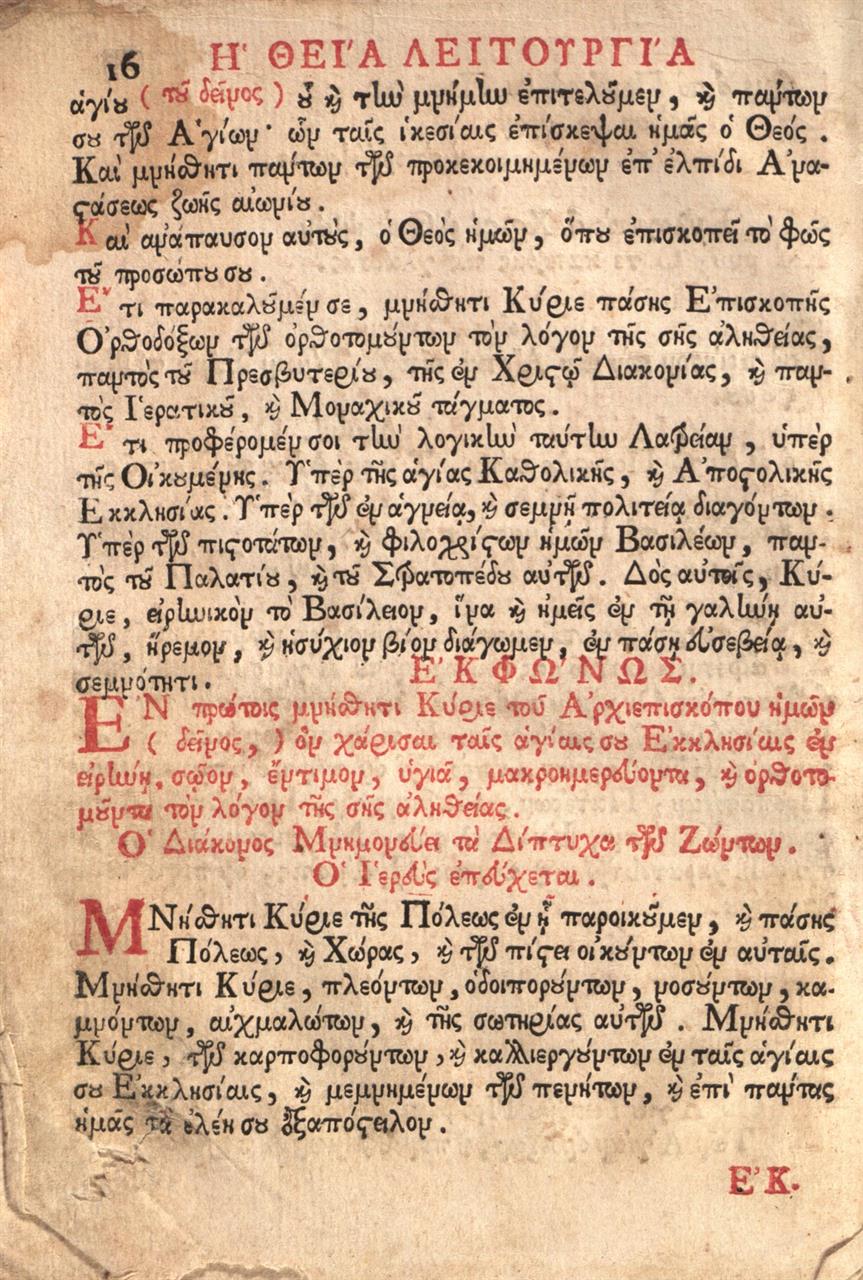 16 Η῾ ΘΕΙ΄Α ΛΕΙΤΟΥΡΓΙ΄Α
ἁγίȣ ( τȣ͂ δεῖνος ) ȣ̔͂ ϗ̀ τὴν μνήμην ἐπιτελȣ͂μεν, ϗ̀ πάντων
σȣ τῶν Α῾γίων· ὧν ταῖς ἱκεσίαις ἐπίσκεψαι ἡμᾶς ὁ Θεός.
Καὶ μνήσθητι πάντων τῶν προκεκοιμημένων ἐπ' ἐλπίδι Α᾿να-
ϛάσεως ζωῆς αἰωνίȣ.
Καὶ ἀνάπαυσον αὐτὺς, ὁ Θεὸς ἡμῶν, ὅπȣ ἐπισκοπεῖ τὸ φῶς
τȣ͂ προσώπȣ σȣ.
Ε῎τι παρακαλȣ͂μέν σε, μνήσθητι Κύριε πάσης Ε᾿πισκοπῆς
Ο᾿ρθοδόξων τῶν ὀρθοτομȣ́ντων τὸν λόγον τῆς σῆς ἀληθείας,
παντὸς τȣ͂ Πρεσβυτερίȣ, τῆς ἐν Χριϛῷ Διακονίας, ϗ̀ παν-
τὸς Ι῾ερατικȣ͂, ϗ̀ Μοναχικȣ͂ τάγματος.
Ε῎τι προφέρομέν σοι τὴν λογικὴν ταύτην Λατρείαν, ὑπὲρ
τῆς Οἰκȣμένης. Υ῾πὲρ τῆς ἁγίας Καθολικῆς, ϗ̀ Α᾿ποϛολικῆς
Εκκλησίας. Υ῾πὲρ τῶν ἐν ἁγνείᾳ, ϗ̀ σεμνῇ πολιτείᾳ διαγόντων.
Υ῾πὲρ τῶν πιϛοτάτων, ϗ̀ φιλοχρίϛων ἡμῶν Βασιλέων, παν-
τὸς τȣ͂ Παλατίȣ, ϗ̀ τȣ͂ Στρατοπέδȣ αὐτῶν. Δὸς αὐτοῖς, Κύ-
ριε, εἰρηνικὸν τὸ Βασίλειον, ἵνα ϗ̀ ἡμεῖς ἐν τῇ γαλήνῃ αὐ-
τῶν, ἤρεμον, ϗ̀ ἡσύχιον βίον διάγωμεν, ἐν πάσῃ εὐσεβείᾳ, ϗ̀
σεμνότητι. Ε᾿ΚΦΩ΄ΝΩΣ.
ΕΝ πρώτοις μνήσθητι Κύριε τοῦ Α᾿ρχιεπισκόπου ἡμῶν
( δεῖνος, ) ὃν χάρισαι ταῖς ἁγίαις σȣ Ε᾿κκλησίαις ἐν
εἰρήνῃ, σῶον, ἔντιμον, ὑγιᾶ, μακροημερεύοντα, ϗ̀ ὀρθοτο-
μȣ͂ντα τὸν λόγον τῆς σῆς ἀληθείας.
Ο῾ Διάκονος Μνημονεύει τὰ Δίπτυχα τῶν Ζώντων.
Ο῾ Ι῾ερεὺς ἐπεύχεται.
ΜΝήσθητι Κύριε τῆς Πόλεως ἐν ᾗ παροικȣ͂μεν, ϗ̀ πάσης
Πόλεως, ϗ̀ Χώρας, ϗ̀ τῶν πίϛει οἰκȣ́ντων ἐν αὐταῖς.
Μνήσθητι Κύριε, πλεόντων, ὁδοιπορȣ́ντων, νοσȣ́ντων, κα-
μνόντων, αἰχμαλώτων, ϗ̀ τῆς σωτηρίας αὐτῶν. Μνήσθητι
Κύριε, τῶν καρποφορȣ́ντων, ϗ̀ καλλιεργȣ́ντων ἐν ταῖς ἁγίαις
σȣ Ε᾿κκλησίαις, ϗ̀ μεμνημένων τῶν πενήτων, ϗ̀ ἐπὶ πάντας
ἡμᾶς τὰ ἐλέη σȣ ἐξαπόϛειλον.
Ε᾿Κ.